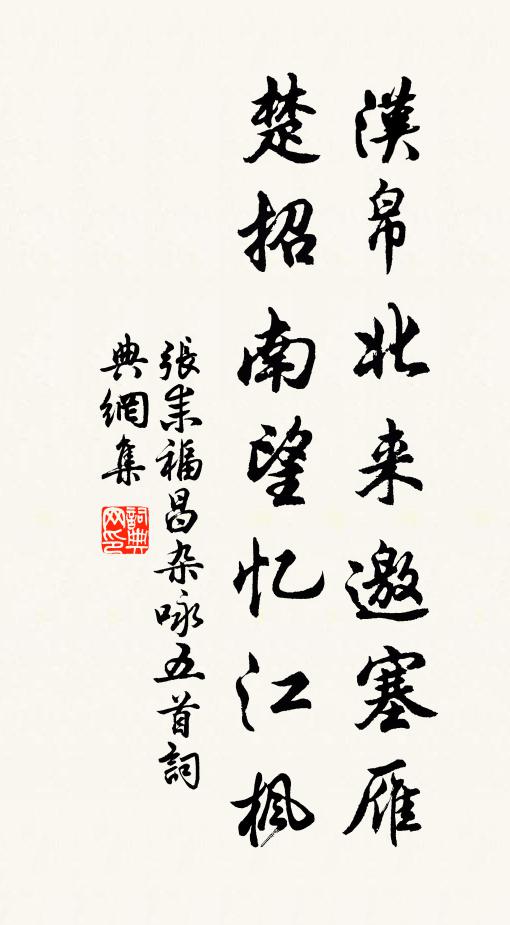 漢帛北来邀塞雁
楚招南望忆江枫
張耒福昌杂咏五首詞
典網集
詞典网印